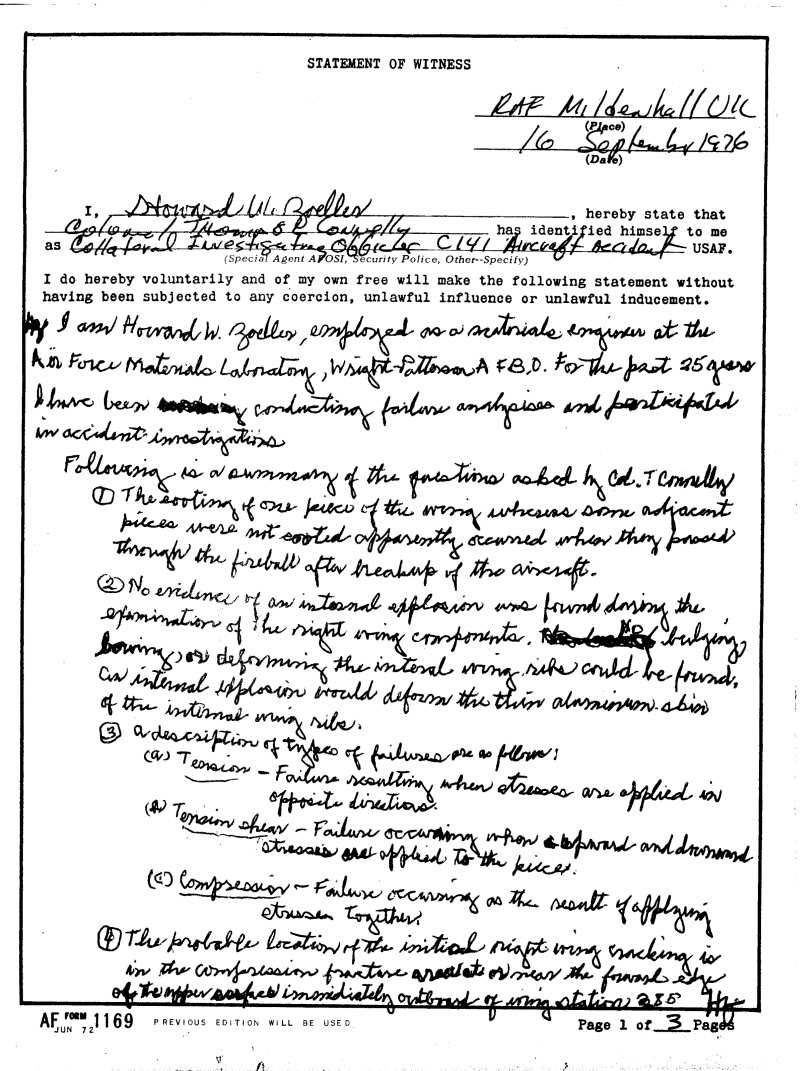 STATEMENT OF WITNESS
RAF Mildenhall UK
(Place)
16 September 1976
(Date)
I, Howard W. Zoeller, hereby state that
Colonel Thomas E Connelly has identified himself to me
as Collateral Investigating Officer C141 Aircraft Accident USAF.
(Special Agent AFOSI, Security Police, Other--Specify)
I do hereby voluntarily and of my own free will make the following statement without
having been subjected to any coercion, unlawful influence or unlawful inducement.
I am Howard W. Zoeller, employed as a materials engineer at the
Air Force Materials Laboratory, Wright-Patterson AFB, O. For the past 25 years
I have been conducting failure analysises and participated
in accident investigations
Following is a summary of the questions asked by Col. T Connelly
① The sooting of one piece of the wing whereas some adjacent
pieces were not sooted apparently occurred when they passed
through the fireball after breakup of the aircraft.
② No evidence of an internal explosion was found during the
examination of the right wing components. No bulging,
bowing, or deforming the interal wing ribs could be found.
An internal explosion would deform the thin aluminum skin
of the internal wing ribs.
③ A description of types of failures are as follows:
(a) Tension - Failure resulting when stresses are applied in
opposite directions.
(b) Tension shear - Failure occurring when upward and downward
stresses are applied to the piece.
(c) Compression - Failure occurring as the result of applying
stresses together.
④ The probable location of the initial right wing cracking is
in the compression fracture area at or near the forward edge
of the upper surface immediately outboard of wing station 285
AF FORM 1169
JUN 72
PREVIOUS EDITION WILL BE USED.
Page 1 of 3 Pages